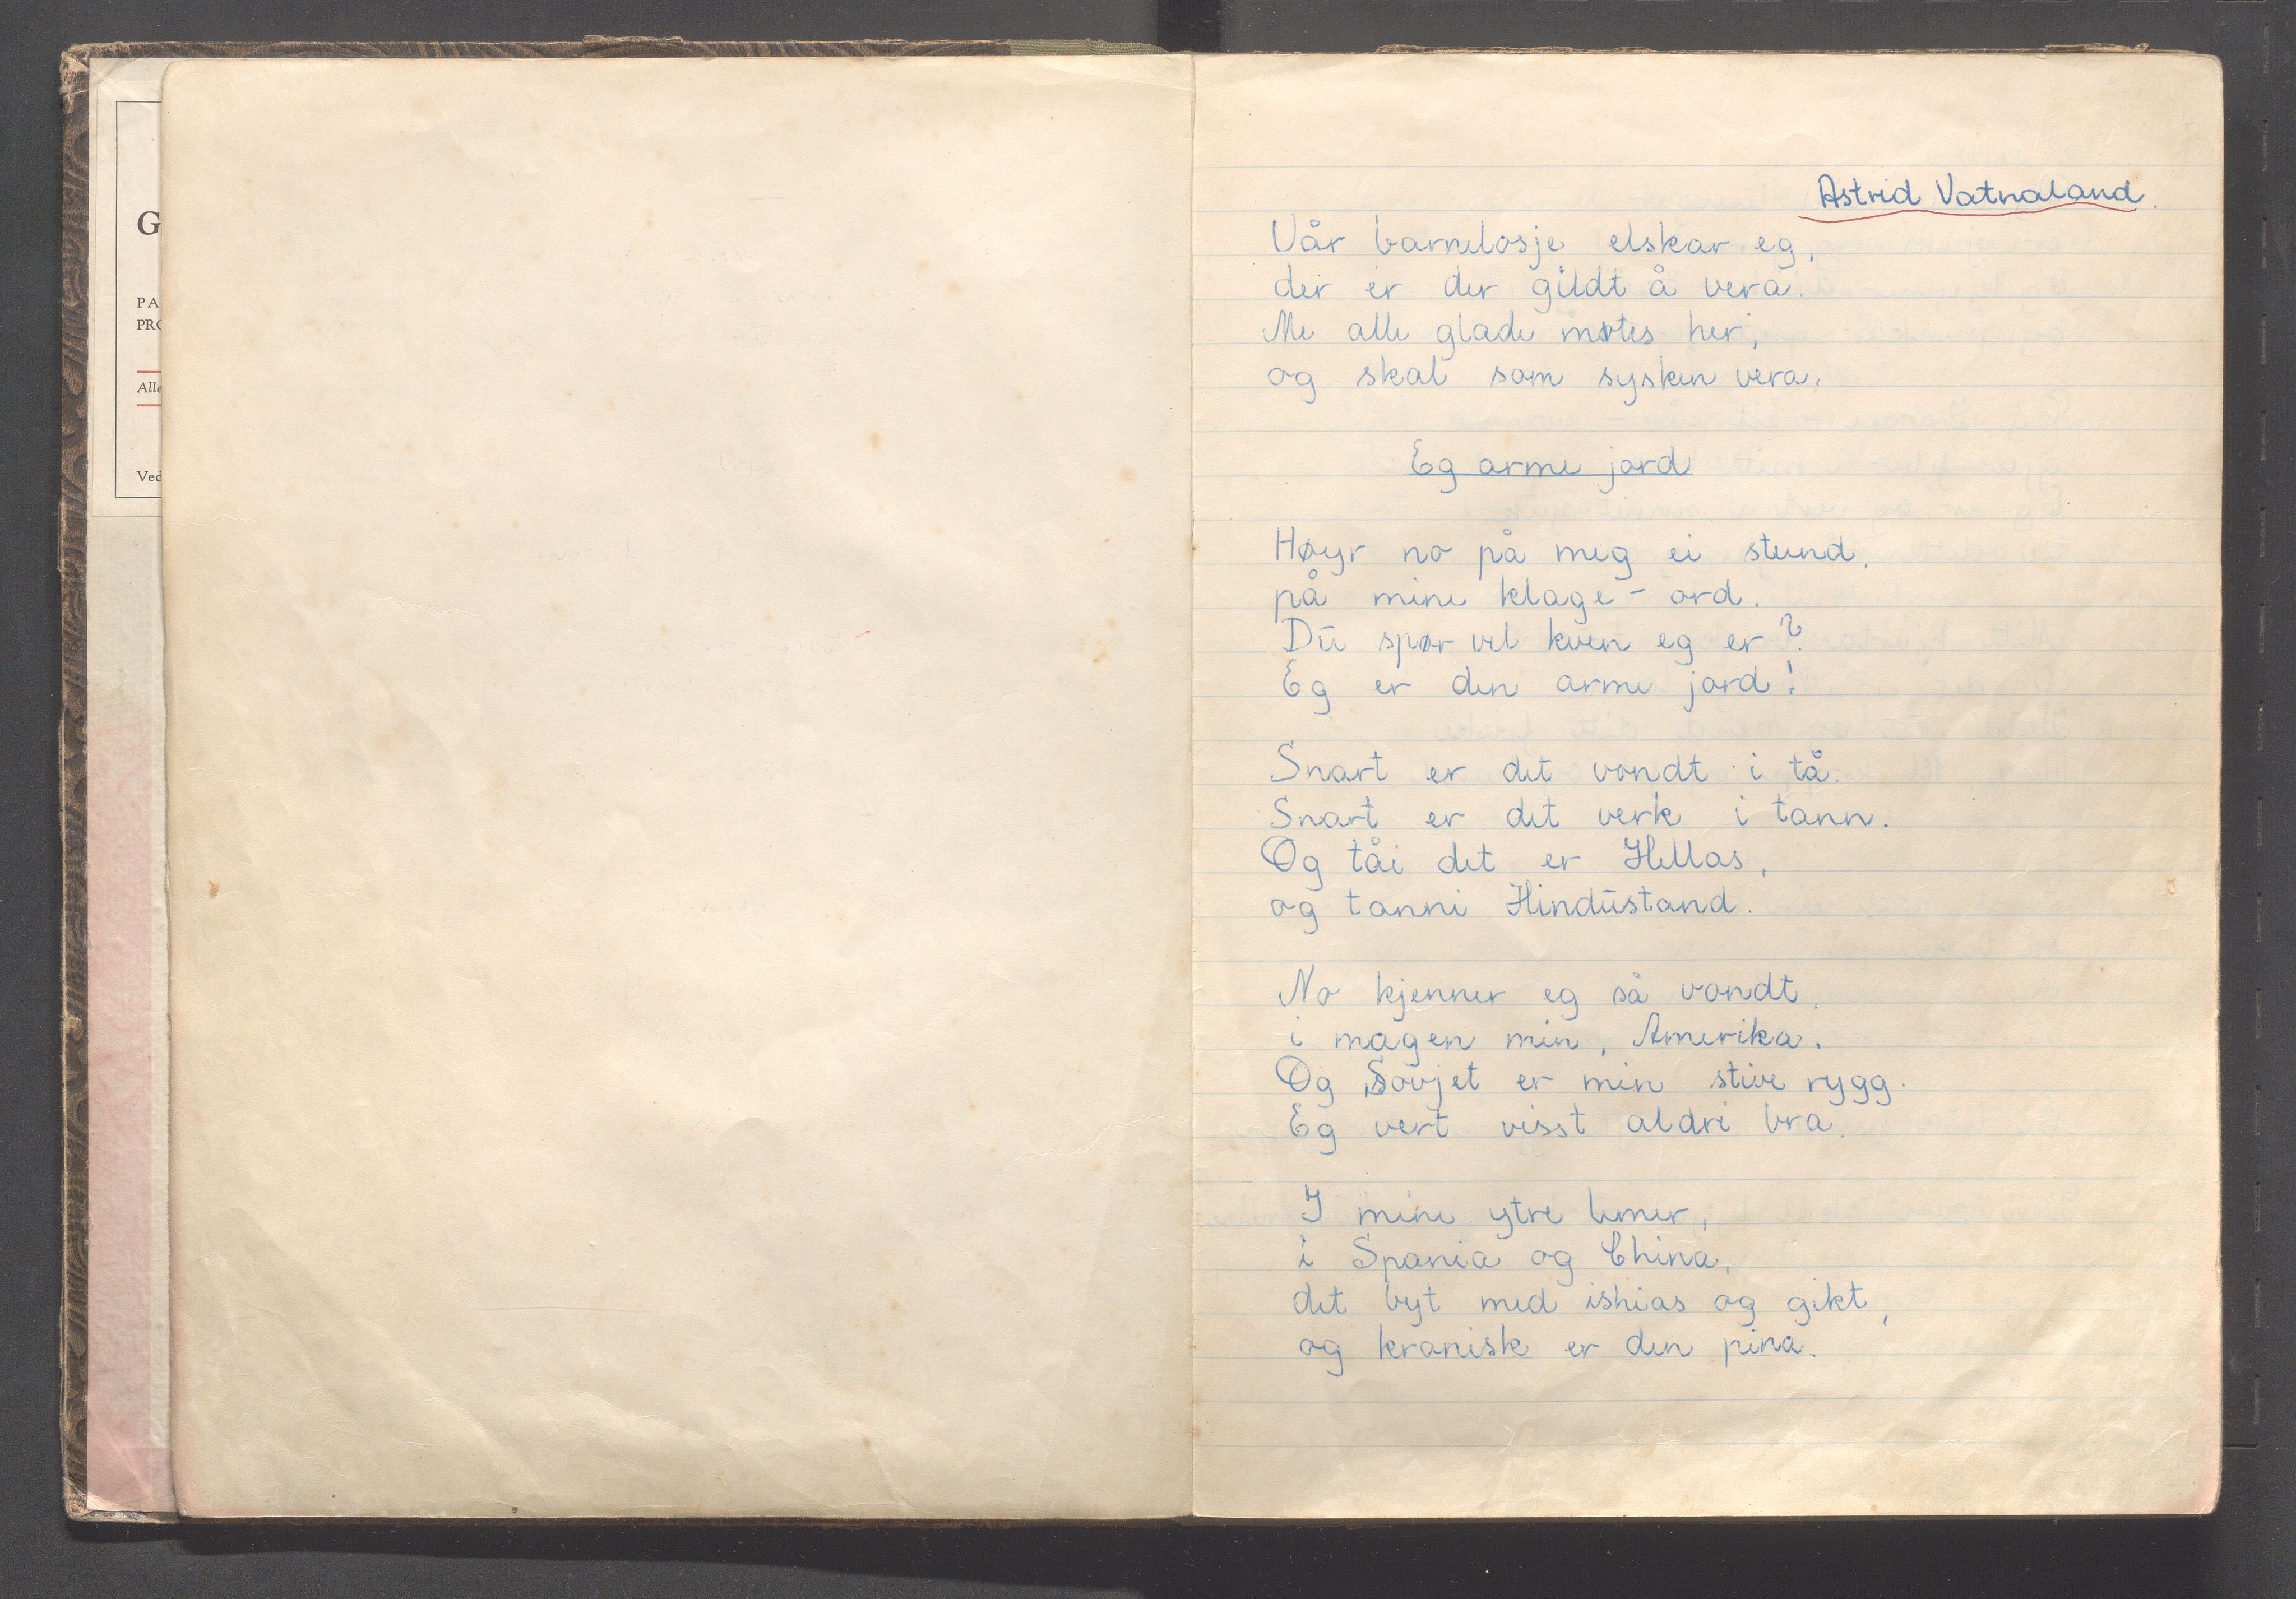 G
PA
PRO
Alle
Ved
Astrid Vatnaland.
Vår barnelosje elskar eg,
der er der gildt å vera.
Me alle glade møtes her,
og skal som sysken vera.
Eg arme jord
Høyr no på meg ei stund,
på mine klage-ord.
Du spør vel kven eg er?
Eg er den arme jord!
Snart er det vondt i tå.
Snart er det verk i tann.
Og tåi det er Hellas,
og tanni Hindustand.
No kjenner eg så vondt,
i magen min, Amerika.
Og Sovjet er min stive rygg.
Eg vert visst aldri bra.
I mine ytre lemer,
i Spania og China,
det byt med ishias og gikt,
og kronisk er den pina.